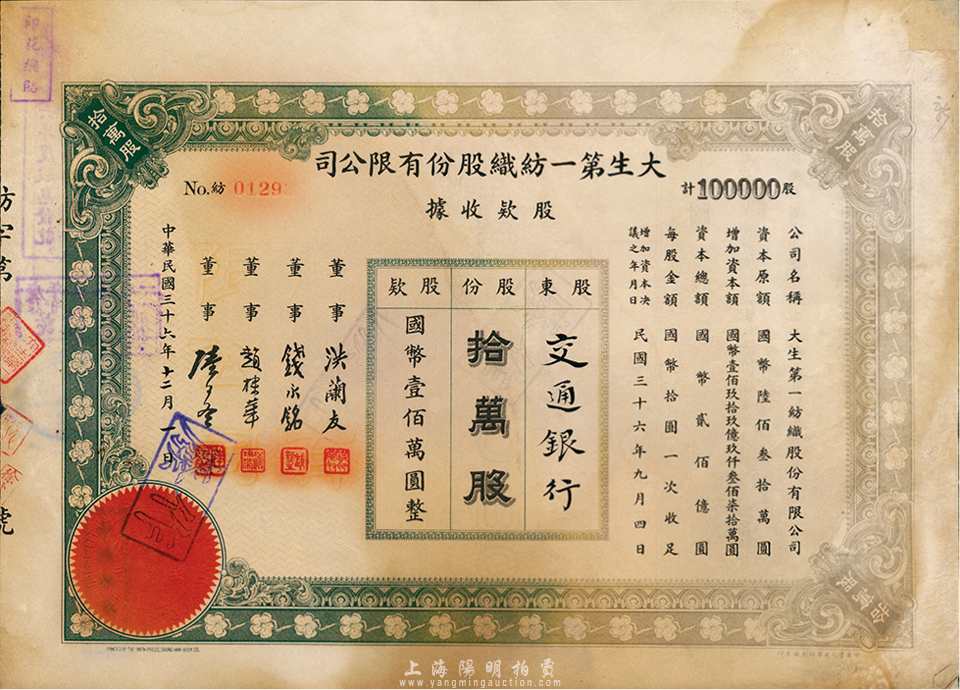 印花總貼
拾萬股
拾萬股
司公限有份股織紡一第生大
No. 紡 0129
計100000股
據收欵股
公司名稱 大生第一紡織股份有限公司
資本原額 國幣陸佰叁拾萬圓
增加資本額 國幣壹佰玖拾玖億玖仟叁佰柒拾萬圓
資本總額 國幣貳佰億圓
每股金額 國幣拾圓一次收足
增加資本决議之年月日 民國三十六年九月四日
股東 交通銀行
股份 拾萬股
股欵 國幣壹佰萬圓整
董事 洪蘭友
董事 錢永銘
董事 趙棣華
董事 陸子冬
中華民國三十六年十二月一日
拾萬股
紡字第
號
上海陽明拍賣
www.yangmingauction.com